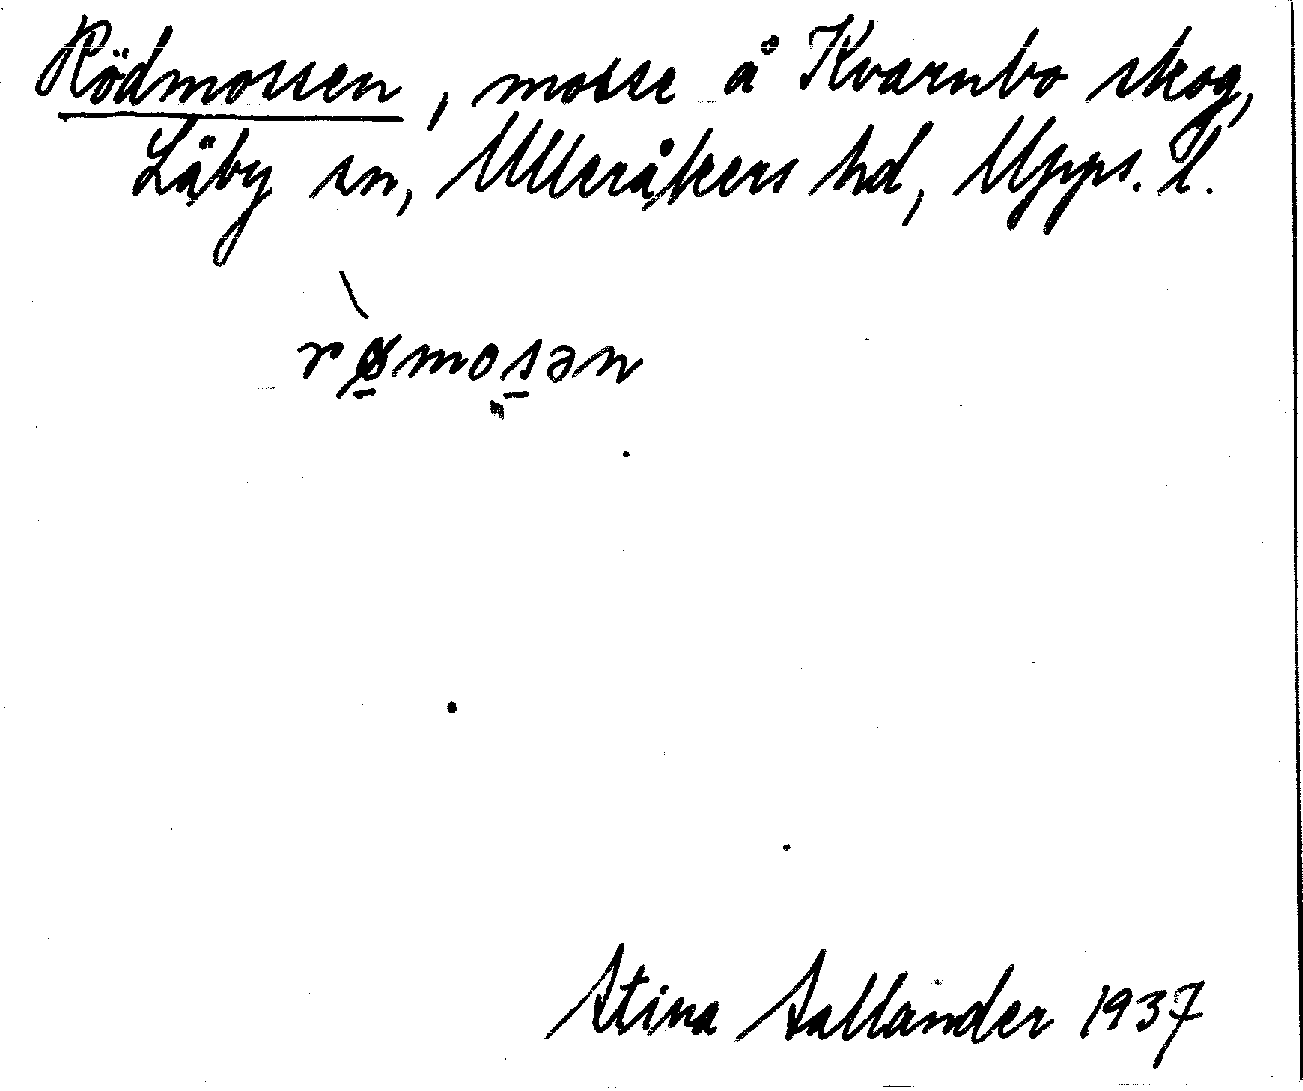 Rödmossen, mosse å Kvarnbo skog,
Läby sn, Ulleråkers hd, Upps. l.
rø̠̀mos̠ən
Stina Sallander 1937